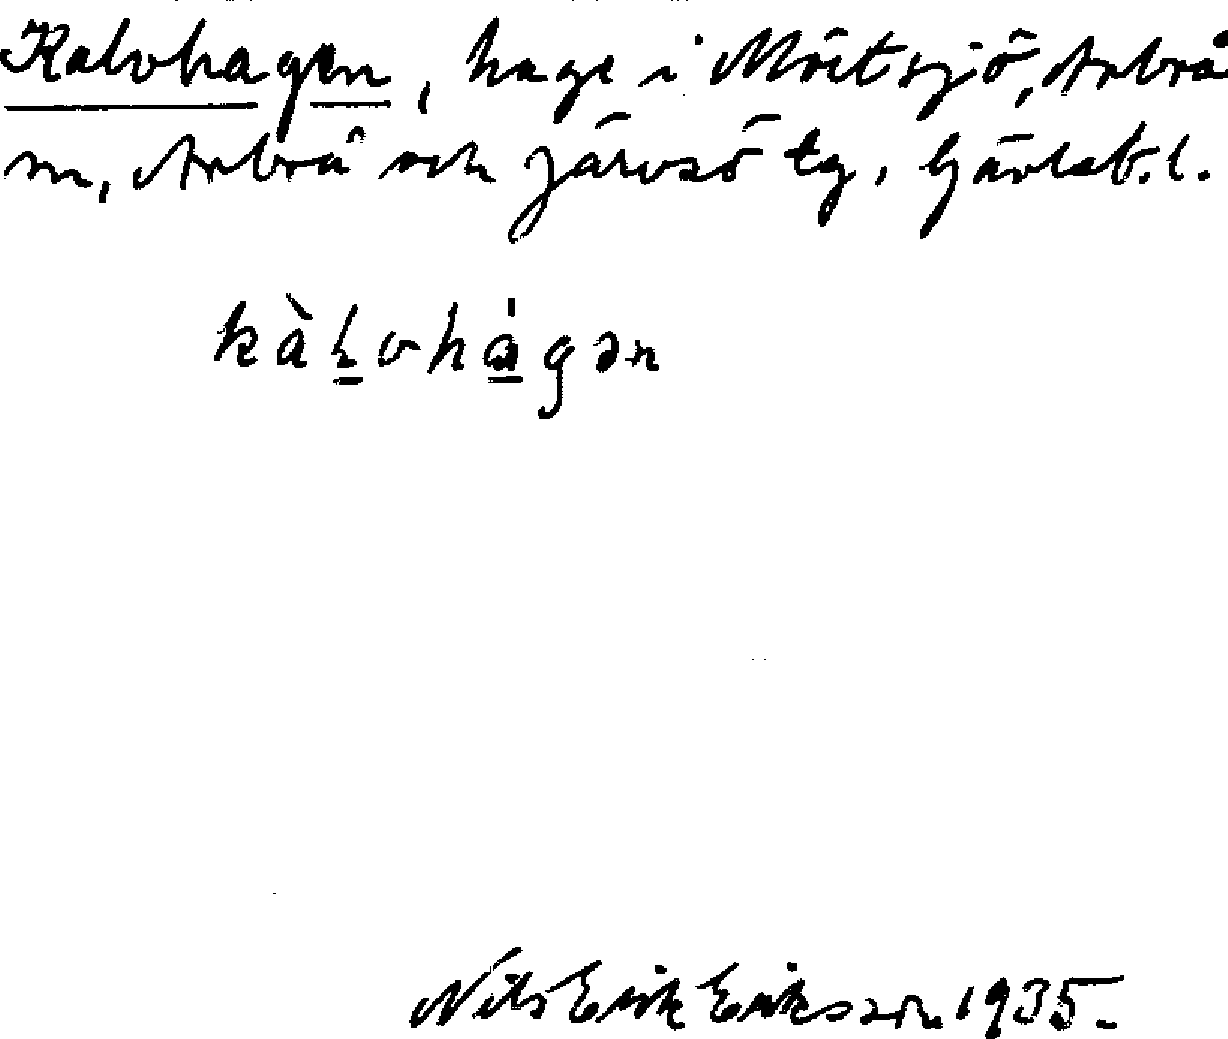 Kalvhagen, hage i Möitsjö, Arbrå
sn, Arbrå och Järvsö tg, Gävleb. l.
kàḻvhá̱gən
Nils Erik Eriksson 1935.